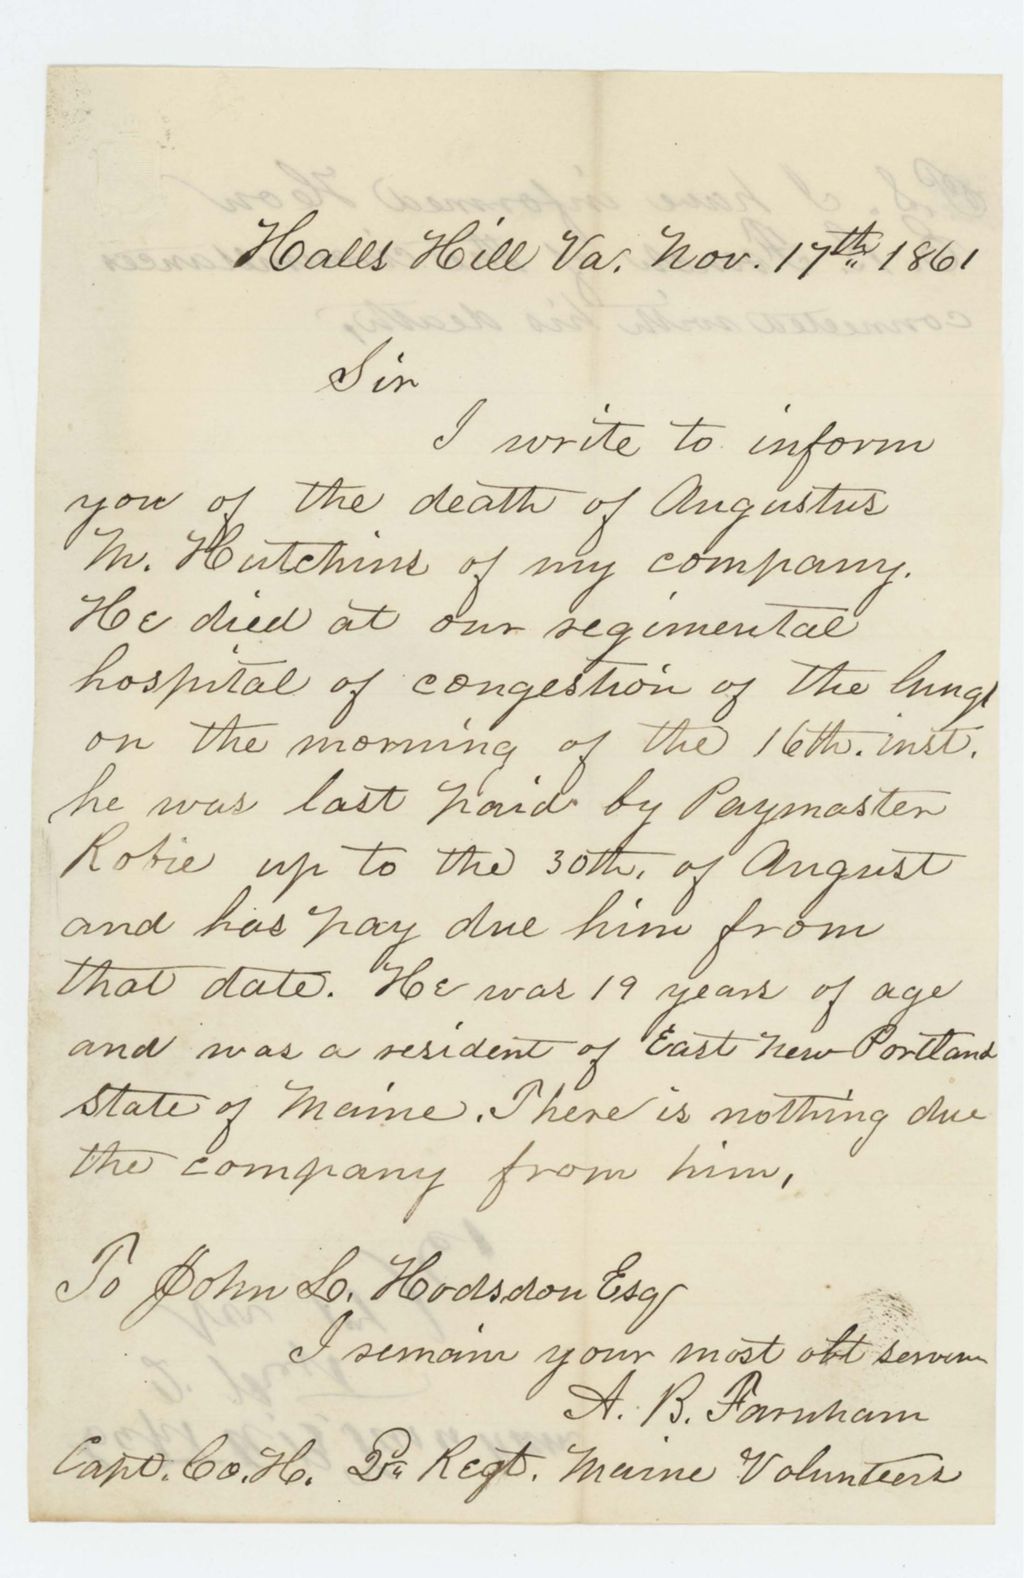 Halls Hill Va. Nov. 17th 1861
Sir
I write to inform
you of the death of Augustus
M. Hutchins of my company.
He died at our regimental
hospital of congestion of the lungs
on the morning of the 16th. inst.
he was last paid by Paymaster
Robie up to the 30th. of August
and has pay due him from
that date. He was 19 years of age
and was a resident of East New Portland
State of Maine. There is nothing due
the company from him,
To John L. Hodsdon Esq
I remain your most obt
A. B. Farnham
Capt. Co. H. 2d Regt. Maine Volunteers